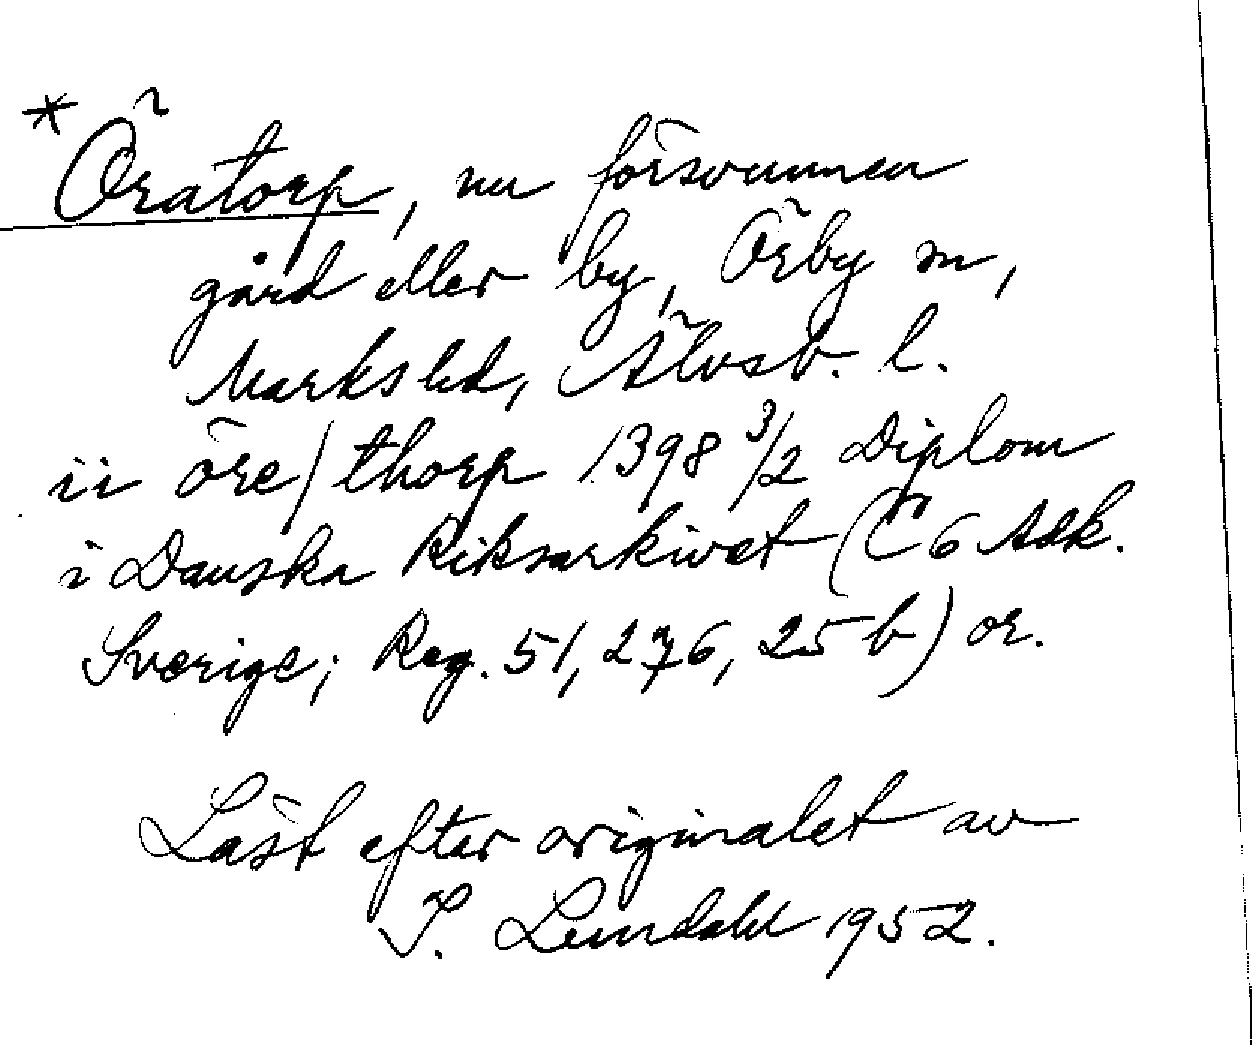 *Öratorp, nu försvunnen
gård eller by, Örby sn,
Marks hd, Älvsb. l.
ii öre/thorp 1398 3/2 Diplom
i Danska Riksarkivet (C 6 Adk.
Sverige; Reg. 51, 276, 25 b) or.
Läst efter originalet av
I. Lundahl 1952.